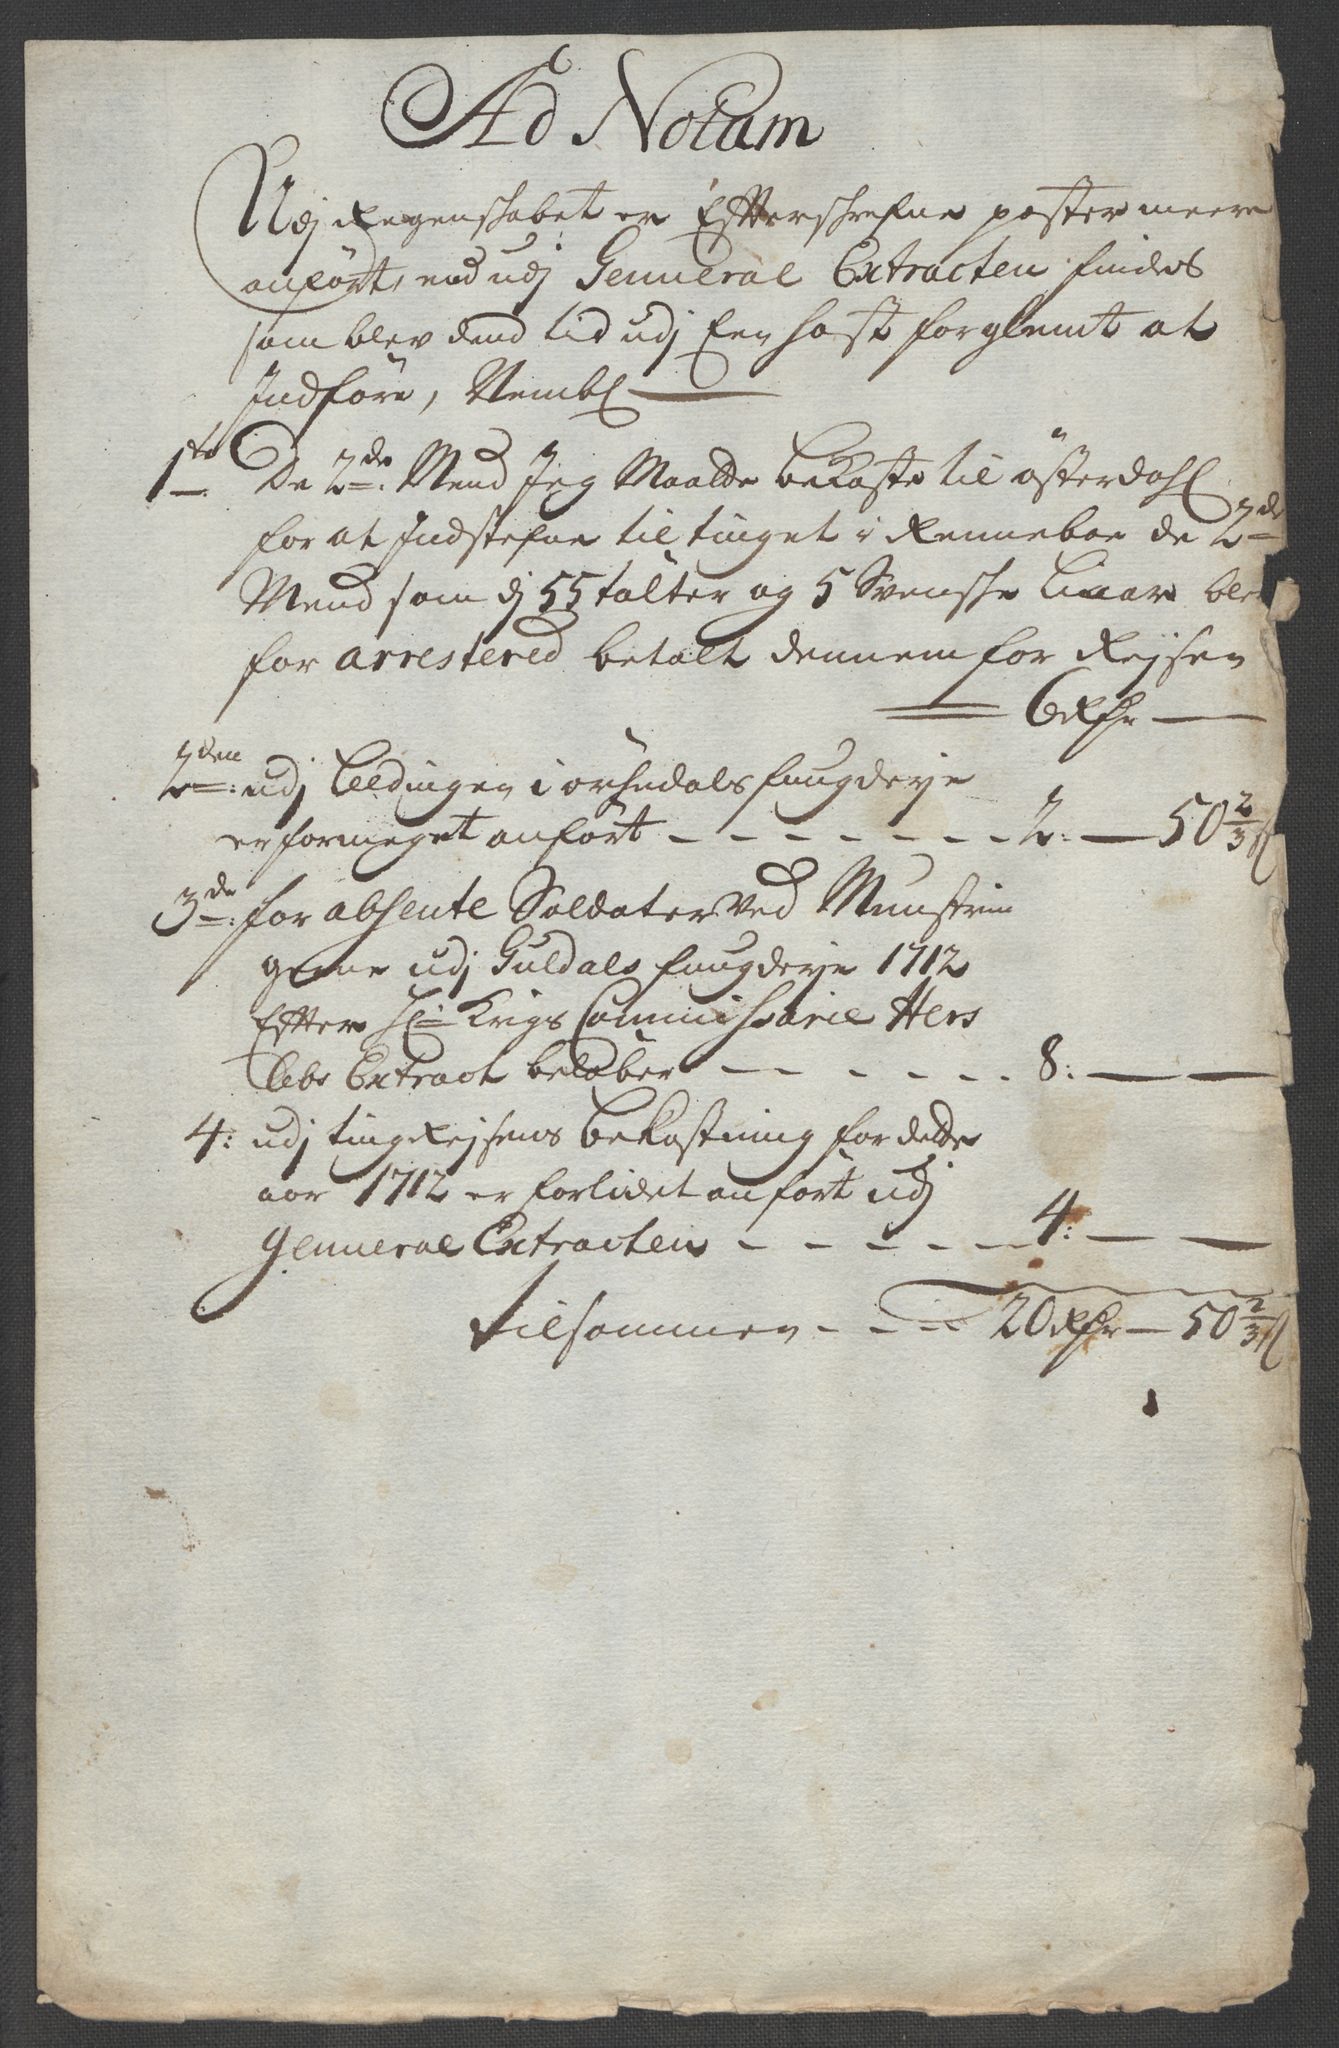 Ad Notam
Udj Regenschabet er Efftterschrefne poster meere
anført, end udj Genneral Extracten findes
som blev dend tid udj Een hast forglemt at
Indføre, Nembl
1te De 2de Mend Jeg Maatte bekoste til österdahl
for at Indstefne til tinget i Renneboe de 2de
Mend som dj 55 talter og 5 Svenshe blev
for arrestered betalt dennem for Reysen
6 Rdr
2den udj Leedingen i orhedals faugderje
er formeget anført 2: 50 2/3 s
3de for absente Soldater ved Munstrin
gerne udj Guldals faugderje 1712
Effter Hr Krigs Commissarie Hers
lebs Extract beløber 8:
4: udj tingRejsens bekostning for dette
aar 1712 er forlidet anført udj
Genneral Extracten 4:
Tilsammen 20 Rdr 50 2/3 s